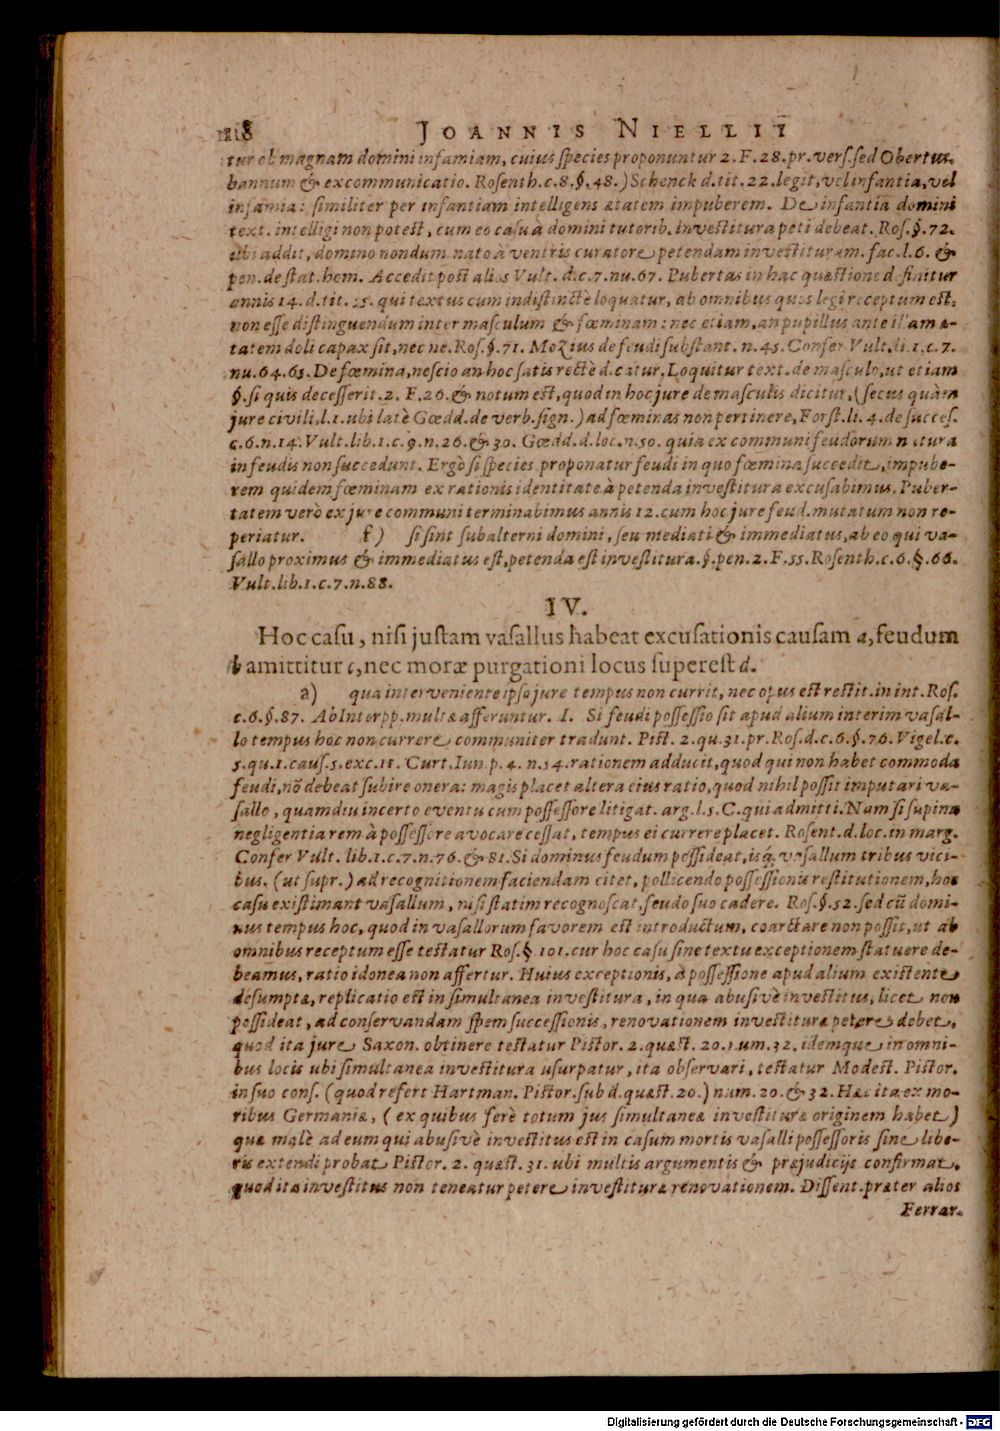 118 JOANNIS NIELLII
tur ob magnam domini infamiam, cuius species proponuntur 2. F. 28. pr. vers. sed Obertus.
bannum & excommunicatio. Rosenth. c. 8. §. 48. ) Schenck d. tit. 22. legit, vel infantia, vel
infamia: similiter per infantiam intelligens ætatem impuberem. De infantia domini
text. intelligi non potest, cum eo casu à domini tutorib. investitura peti debeat. Ros. §. 72.
ubi addit, domino nondum nato à ventris curatore petendam investituram. fac. l. 6. &
pen. de stat. hom. Accedit post alios Vult. d. c. 7. nu. 67. Pubertas in hac quæstione definitur
annis 14. d. tit. 55. qui textus cum indistinctè loquatur, ab omnibus quos legi receptum est,
non esse distinguendum inter masculum & fœminam: nec etiam, an pupillus ante illam æ-
tatem doli capax sit, nec ne. Ros. §. 71. Mozius de feudi substant. n. 45. Confer Vult. li. 1. c. 7.
nu. 64. 65. De fœmina, nescio an hoc satis rectè dicatur, Loquitur text. de masculo, ut etiam
§. si quis decesserit. 2. F. 26. & notum est, quod in hoc jure de masculis dicitur, (secus quàm
jure civili, l. 1. ubi latè Gœdd. de verb. sign. ) ad fœminas non pertinere, Forst. li. 4. de success.
c. 6. n. 14. Vult. lib. 1. c. 9. n. 26. & 30. Gœdd. d. loc. n. 50. quia ex communi feudorum natura
in feudis non succedunt. Ergò si species proponatur feudi in quo fœmina succedit, impube-
rem quidem fœminam ex rationis identitate à petenda investitura excusabimus. Puber-
tatem verò ex jure communi terminabimus annis 12. cum hoc jure feud. mutatum non re-
periatur. f) si sint subalterni domini, seu mediati & immediatus, ab eo qui va-
sallo proximus & immediatus est, petenda est investitura. §. pen. 2. F. 55. Rosenth. c. 6. §. 66.
Vult. lib. 1. c. 7. n. 88.
IV.
Hoc casu, nisi justam vasallus habeat excusationis causam a, feudum
b amittitur c, nec moræ purgationi locus superest d.
a) qua interveniente ipso jure tempus non currit, nec opus est restit. in int. Ros.
c. 6. §. 87. Ab Interpp. multæ afferuntur. I. Si feudi possessio sit apud alium interim vasal-
lo tempus hoc non currere communiter tradunt. Pist. 2. qu. 31. pr. Ros. d. c. 6. §. 76. Vigel. c.
5. qu. 1. caus. 5. exc. 11. Curt. Iun. p. 4. n. 54. rationem adducit, quod qui non habet commoda
feudi, nō debeat subire onera: magis placet altera eius ratio, quod nihil possit imputari va-
sallo, quamdiu incerto eventu cum possessore litigat. arg. l. 5. C. qui admitti. Nam si supina
negligentia rem à possessore avocare cessat, tempus ei currere placet. Rosent. d. loc. in marg.
Confer Vult. lib. 1. c. 7. n. 76. & 81. Si dominus feudum possideat, isq; vasallum tribus vici-
bus. (ut supr. ) ad recognitionem faciendam citet, pollicendo possessionis restitutionem, hoc
casu existimant vasallum, nisi statim recognoscat, feudo suo cadere. Ros. §. 52. sed cū domi-
nus tempus hoc, quod in vasallorum favorem est introductum, coarctare non possit, ut ab
omnibus receptum esse testatur Ros. §. 101. cur hoc casu sine textu exceptionem statuere de-
beamus, ratio idonea non affertur. Huius exceptionis, à possessione apud alium existente
desumptæ, replicatio est in simultanea investitura, in qua abusivè investitus, licet non
possideat, ad conservandam spem successionis, renovationem investituræ petere debet,
quod ita jure Saxon. obtinere testatur Pistor. 2. quæst. 20. num. 32. idemque in omni-
bus locis ubi simultanea investitura usurpatur, ita observari, testatur Modest. Pistor.
in suo cons. (quod refert Hartman. Pistor. sub d. quæst. 20. ) num. 20. & 32. Hæc ita ex mo-
ribus Germaniæ, ( ex quibus ferè totum jus simultaneæ investituræ originem habet )
quæ malè ad eum qui abusivè investitus est in casum mortis vasalli possessoris sine libe-
ris extendi probat Pistor. 2. quæst. 31. ubi multis argumentis & præjudicijs confirmat,
quod ita investitus non teneatur petere investituræ renovationem. Dissent. præter alios
Ferrar.
Digitalisierung gefördert durch die Deutsche Forschungsgemeinschaft - DFG